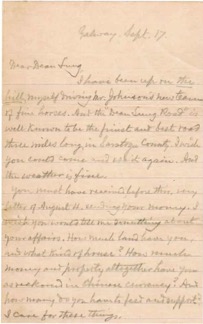 Galway, Sept. 17.
Dear Dean Lung
I have been up on the
hill, myself driving Mr. Johnson's new team
of fine horses. And the Dean Lung Road is
well known to be the finest and best road
three miles long, in County. I wish
you could come and see it again. And
the weather is fine.
You must have received before this, my
letter of August 11. sending your money. I
wish you would tell me something about
your affairs. How much land have you,
and what kind of house? How much
money and property altogether have you
as reckoned in Chinese currency? And
how many do you have to feed and support?
I care for these things.